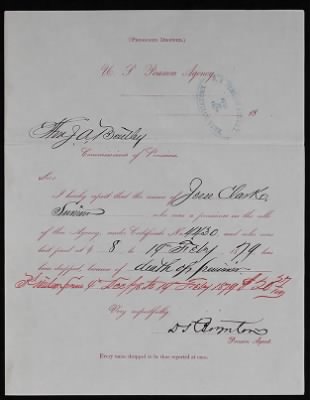 (PENSIONER DROPPED.)
U. S. Pension Agency,
18
Hon. J. A. Bentley
Commissioner of Pensions.
Sir:
I hereby report that the name of Jesse Clarke
who was a pensioner on the rolls
of this Agency, under Certificate No. 4430 and who
was last paid at $ 8 to 4 1879 has
been dropped, because of death of pensioner
from 4" to 14" 1879 $
Very respectfully,
D. S. Boynton
Pension Agent.
Every name dropped to be thus reported at once.